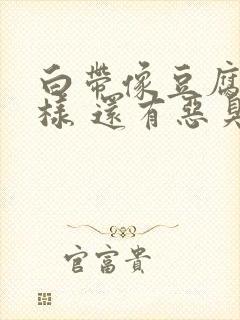 白帶像豆腐
樣 還有惡臭
官富貴